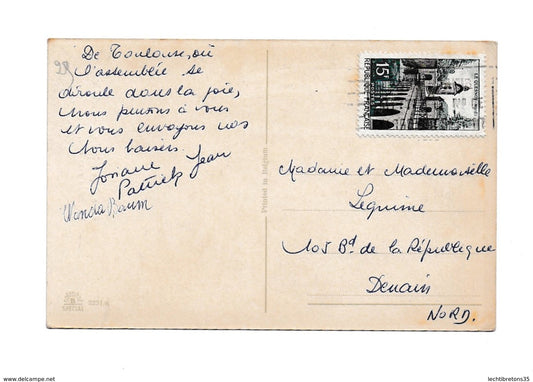 28
De Toulouse, où
l'assemblée se
déroule dans la joie,
Nous pensons à vous
et vous envoyons nos
bons baisers.
Josiane Jean
Patrick
Wanda
Printed in Belgium
SPECIAL
15F
Madame et Mademoiselle
Lequime
105 Bd de la République
Denain
NORD.
www.delcampe.net
lechtibretons35